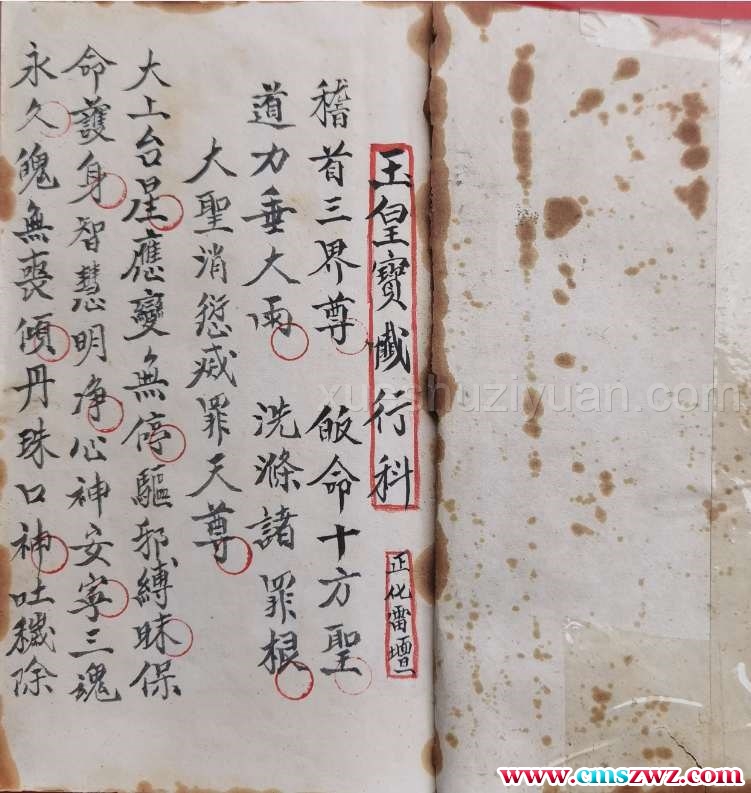 玉皇寶懴行科
正化雷壇
稽首三界尊 皈命十方聖
道力垂大雨 洗滌諸罪根
大聖消愆烕罪天尊
大上台星應變無停驅邪縛昧保
命護身智慧明净心神安寧三魂
永久魄無喪傾丹珠口神吐穢除
xueshuziyuan.com
www.cmszwz.com